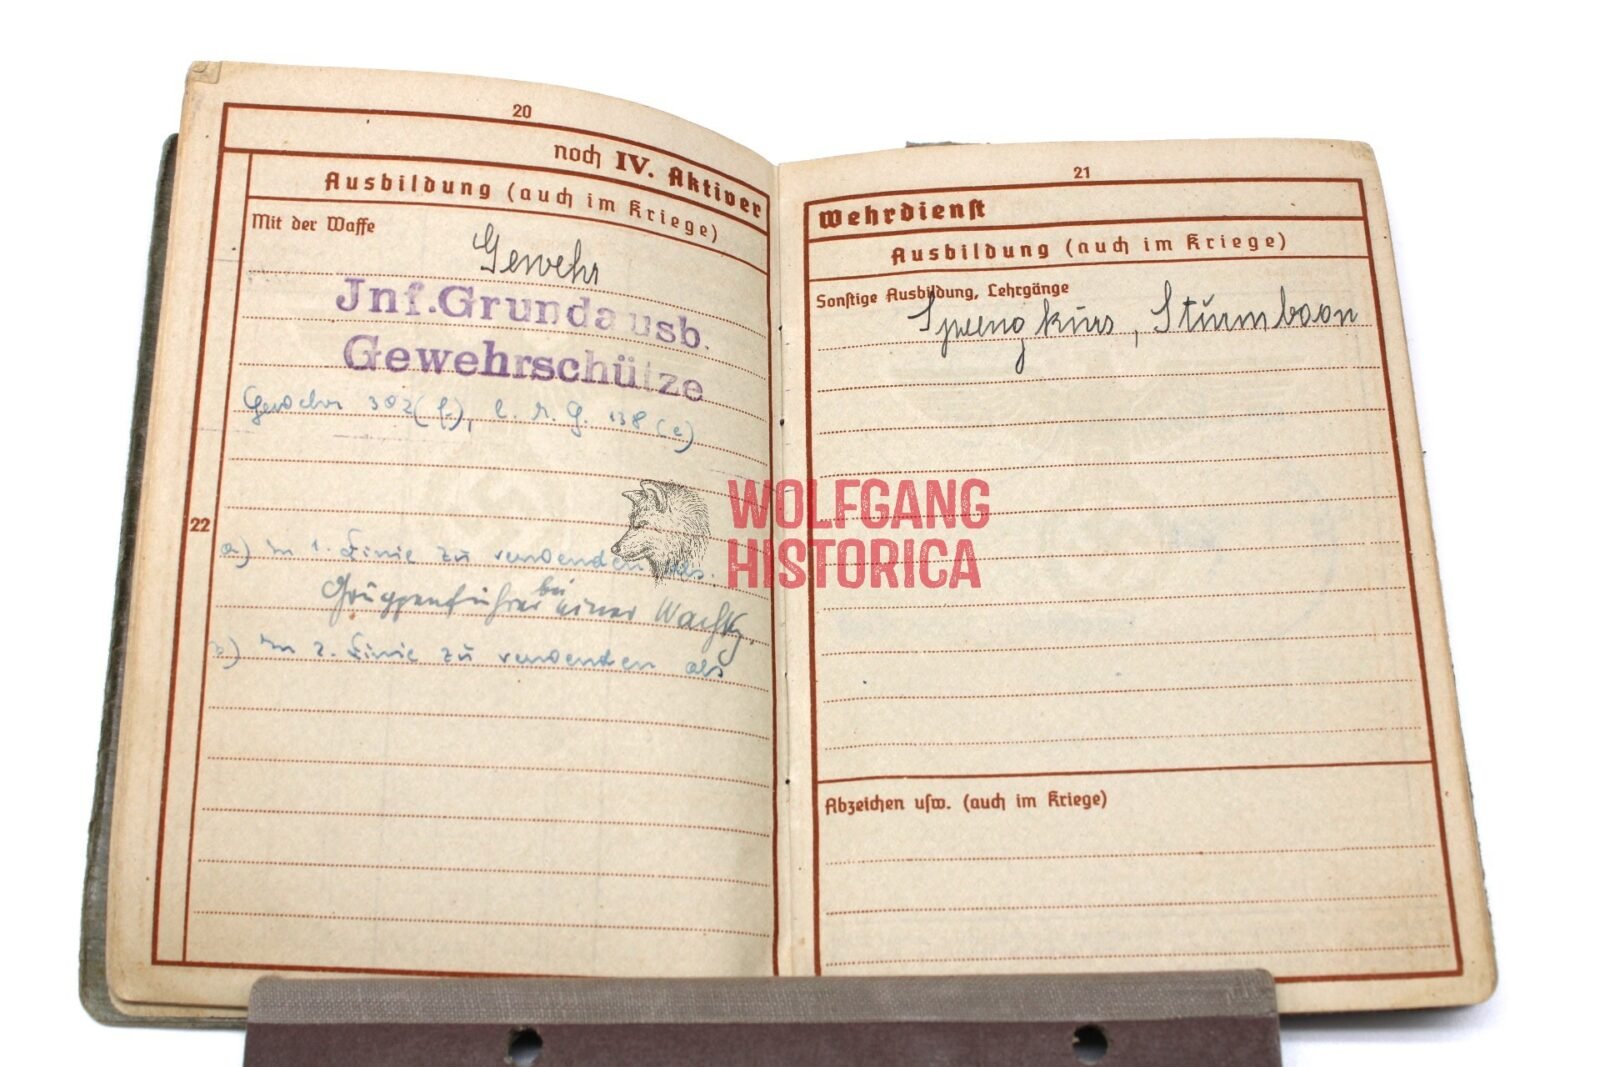 20
noch IV. Aktiver
Ausbildung (auch im Kriege)
Mit der Waffe
Gewehr
Jnf.Grundausb.
Gewehrschütze
Gewehr 302 (f), l. M. G. 138 (e)
22
a) in 1. Linie zu verwenden als
Gruppenführer bei einer Wachkp.
b) in 2. Linie zu verwenden als
21
Wehrdienst
Ausbildung (auch im Kriege)
Sonstige Ausbildung, Lehrgänge
Sprengkurs, Sturmboot
Abzeichen usw. (auch im Kriege)
WOLFGANG
HISTORICA